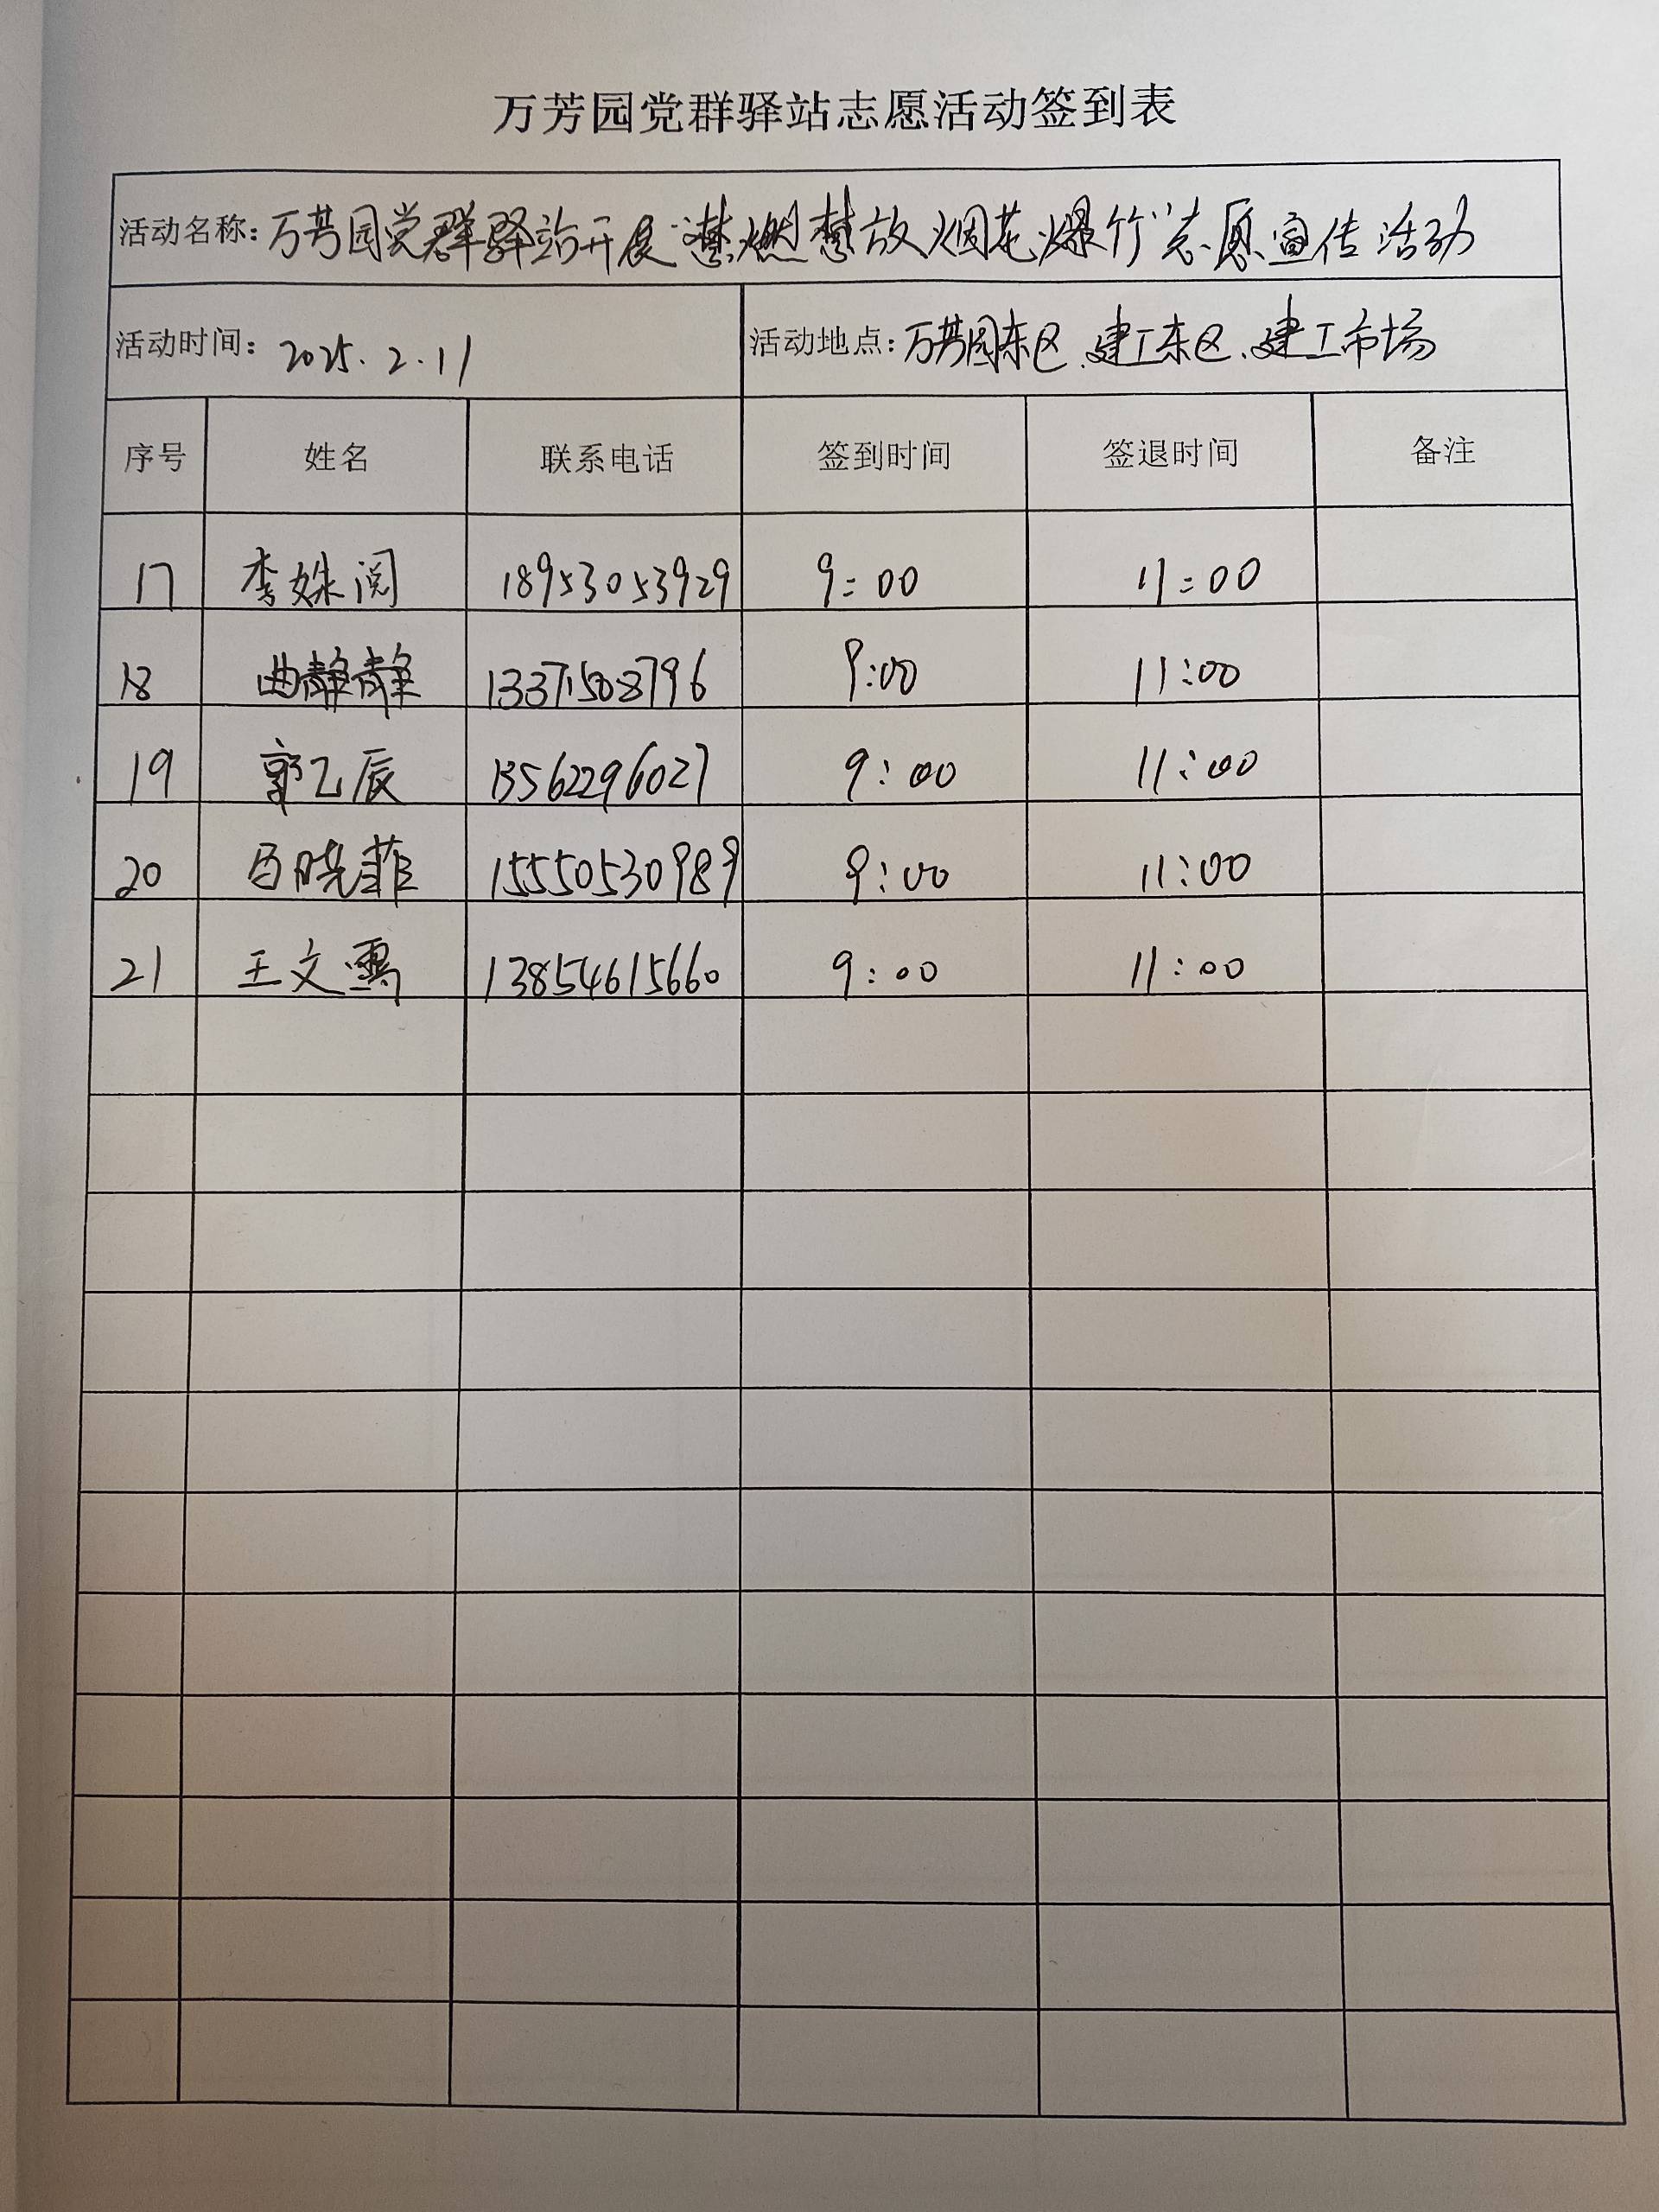 万芳园党群驿站志愿活动签到表
活动名称：万芳园党群驿站开展“禁燃禁放烟花爆竹”志愿宣传活动
活动时间：2025.2.11 活动地点：万芳园东区、建工东区、建工市场
序号 姓名 联系电话 签到时间 签退时间 备注
17 李姝阅 18953053929 9:00 11:00
18 曲静静 9:00 11:00
19 郭乙辰 13562296027 9:00 11:00
20 晓菲 15550530989 9:00 11:00
21 王文 13854615660 9:00 11:00